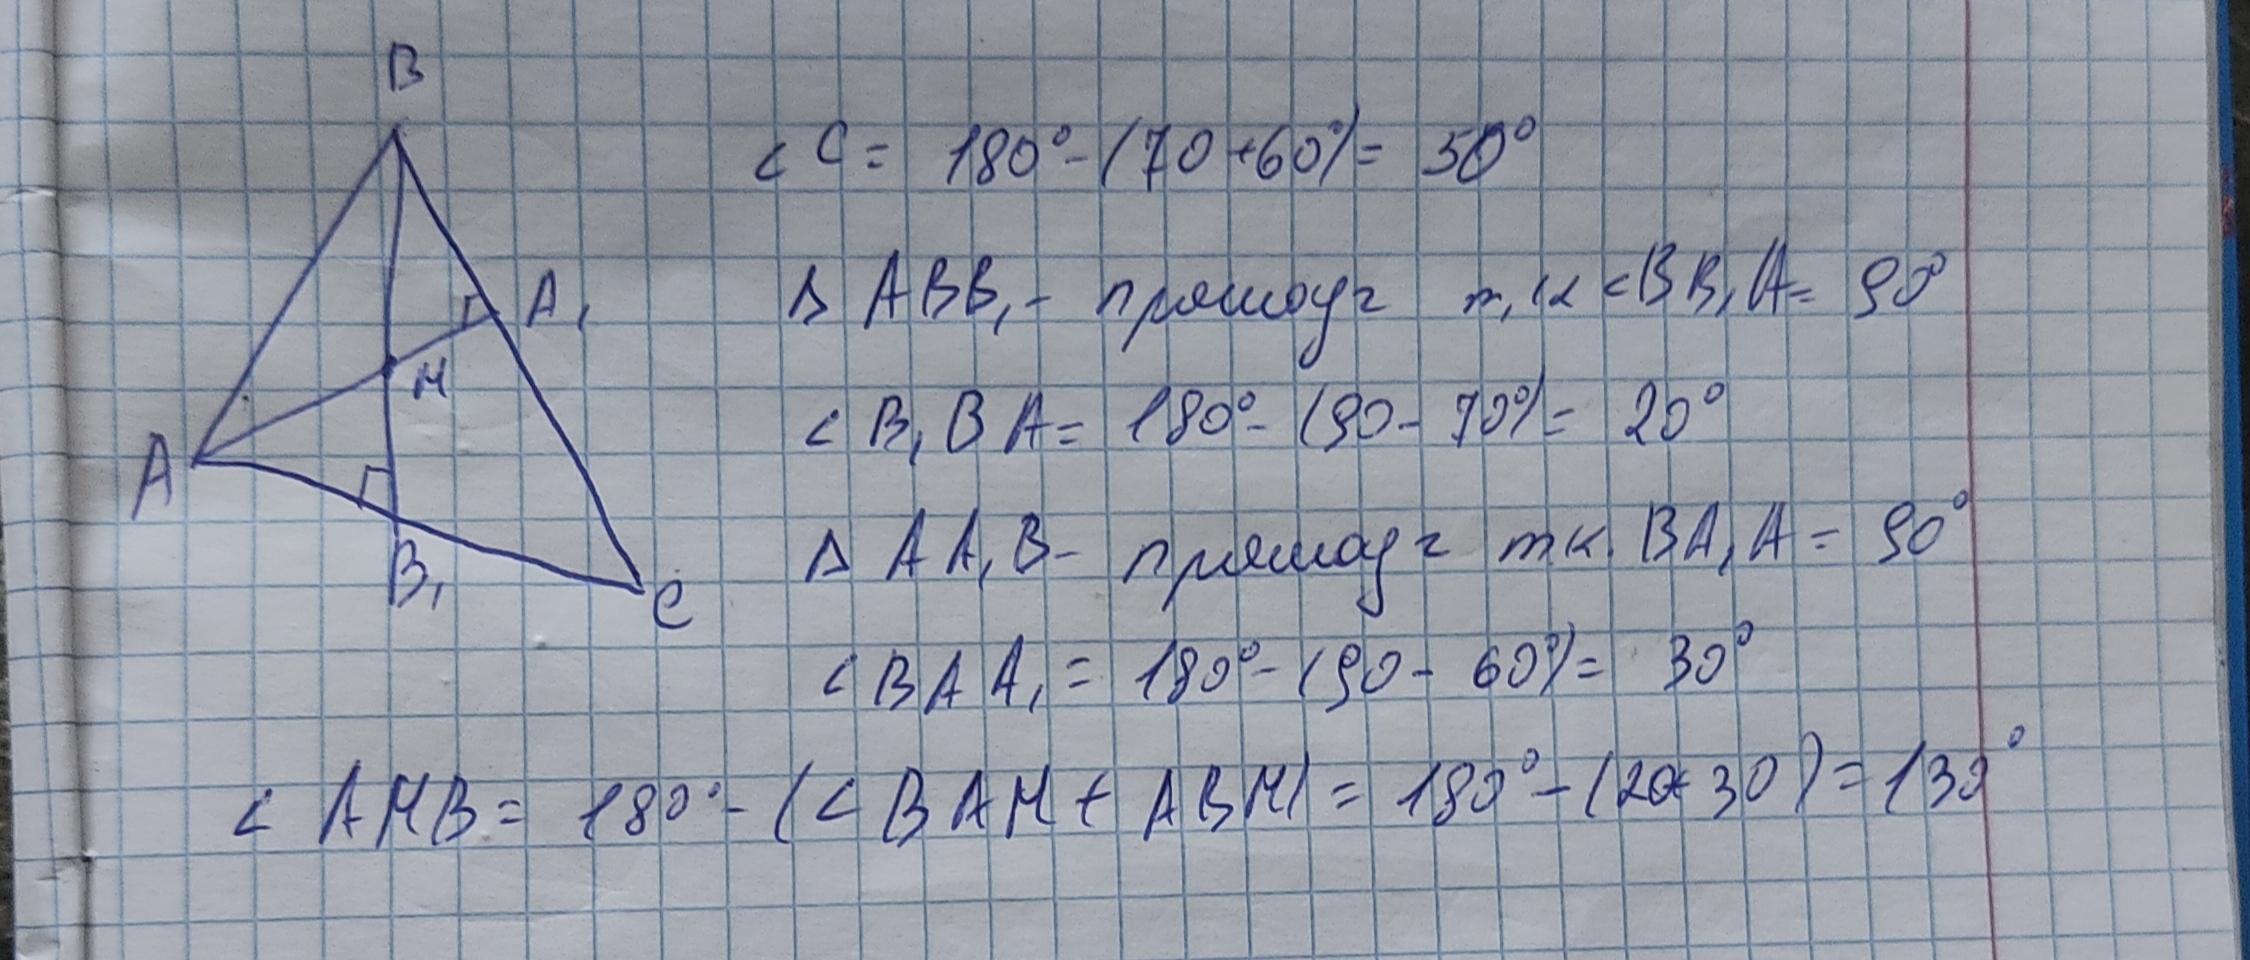 B
A
A₁
M
B₁
C
< C = 180° - (70 + 60°) = 50°
Δ ABB₁ - прямоуг т.к <BB₁A = 90°
< B₁BA = 180° - (90 - 70°) = 20°
Δ AA₁B - прямоуг т к. BA₁A = 90°
< BAA₁ = 180° - (90 - 60°) = 30°
< AMB = 180° - (< BAM + ABM) = 180° - (20 + 30) = 130°